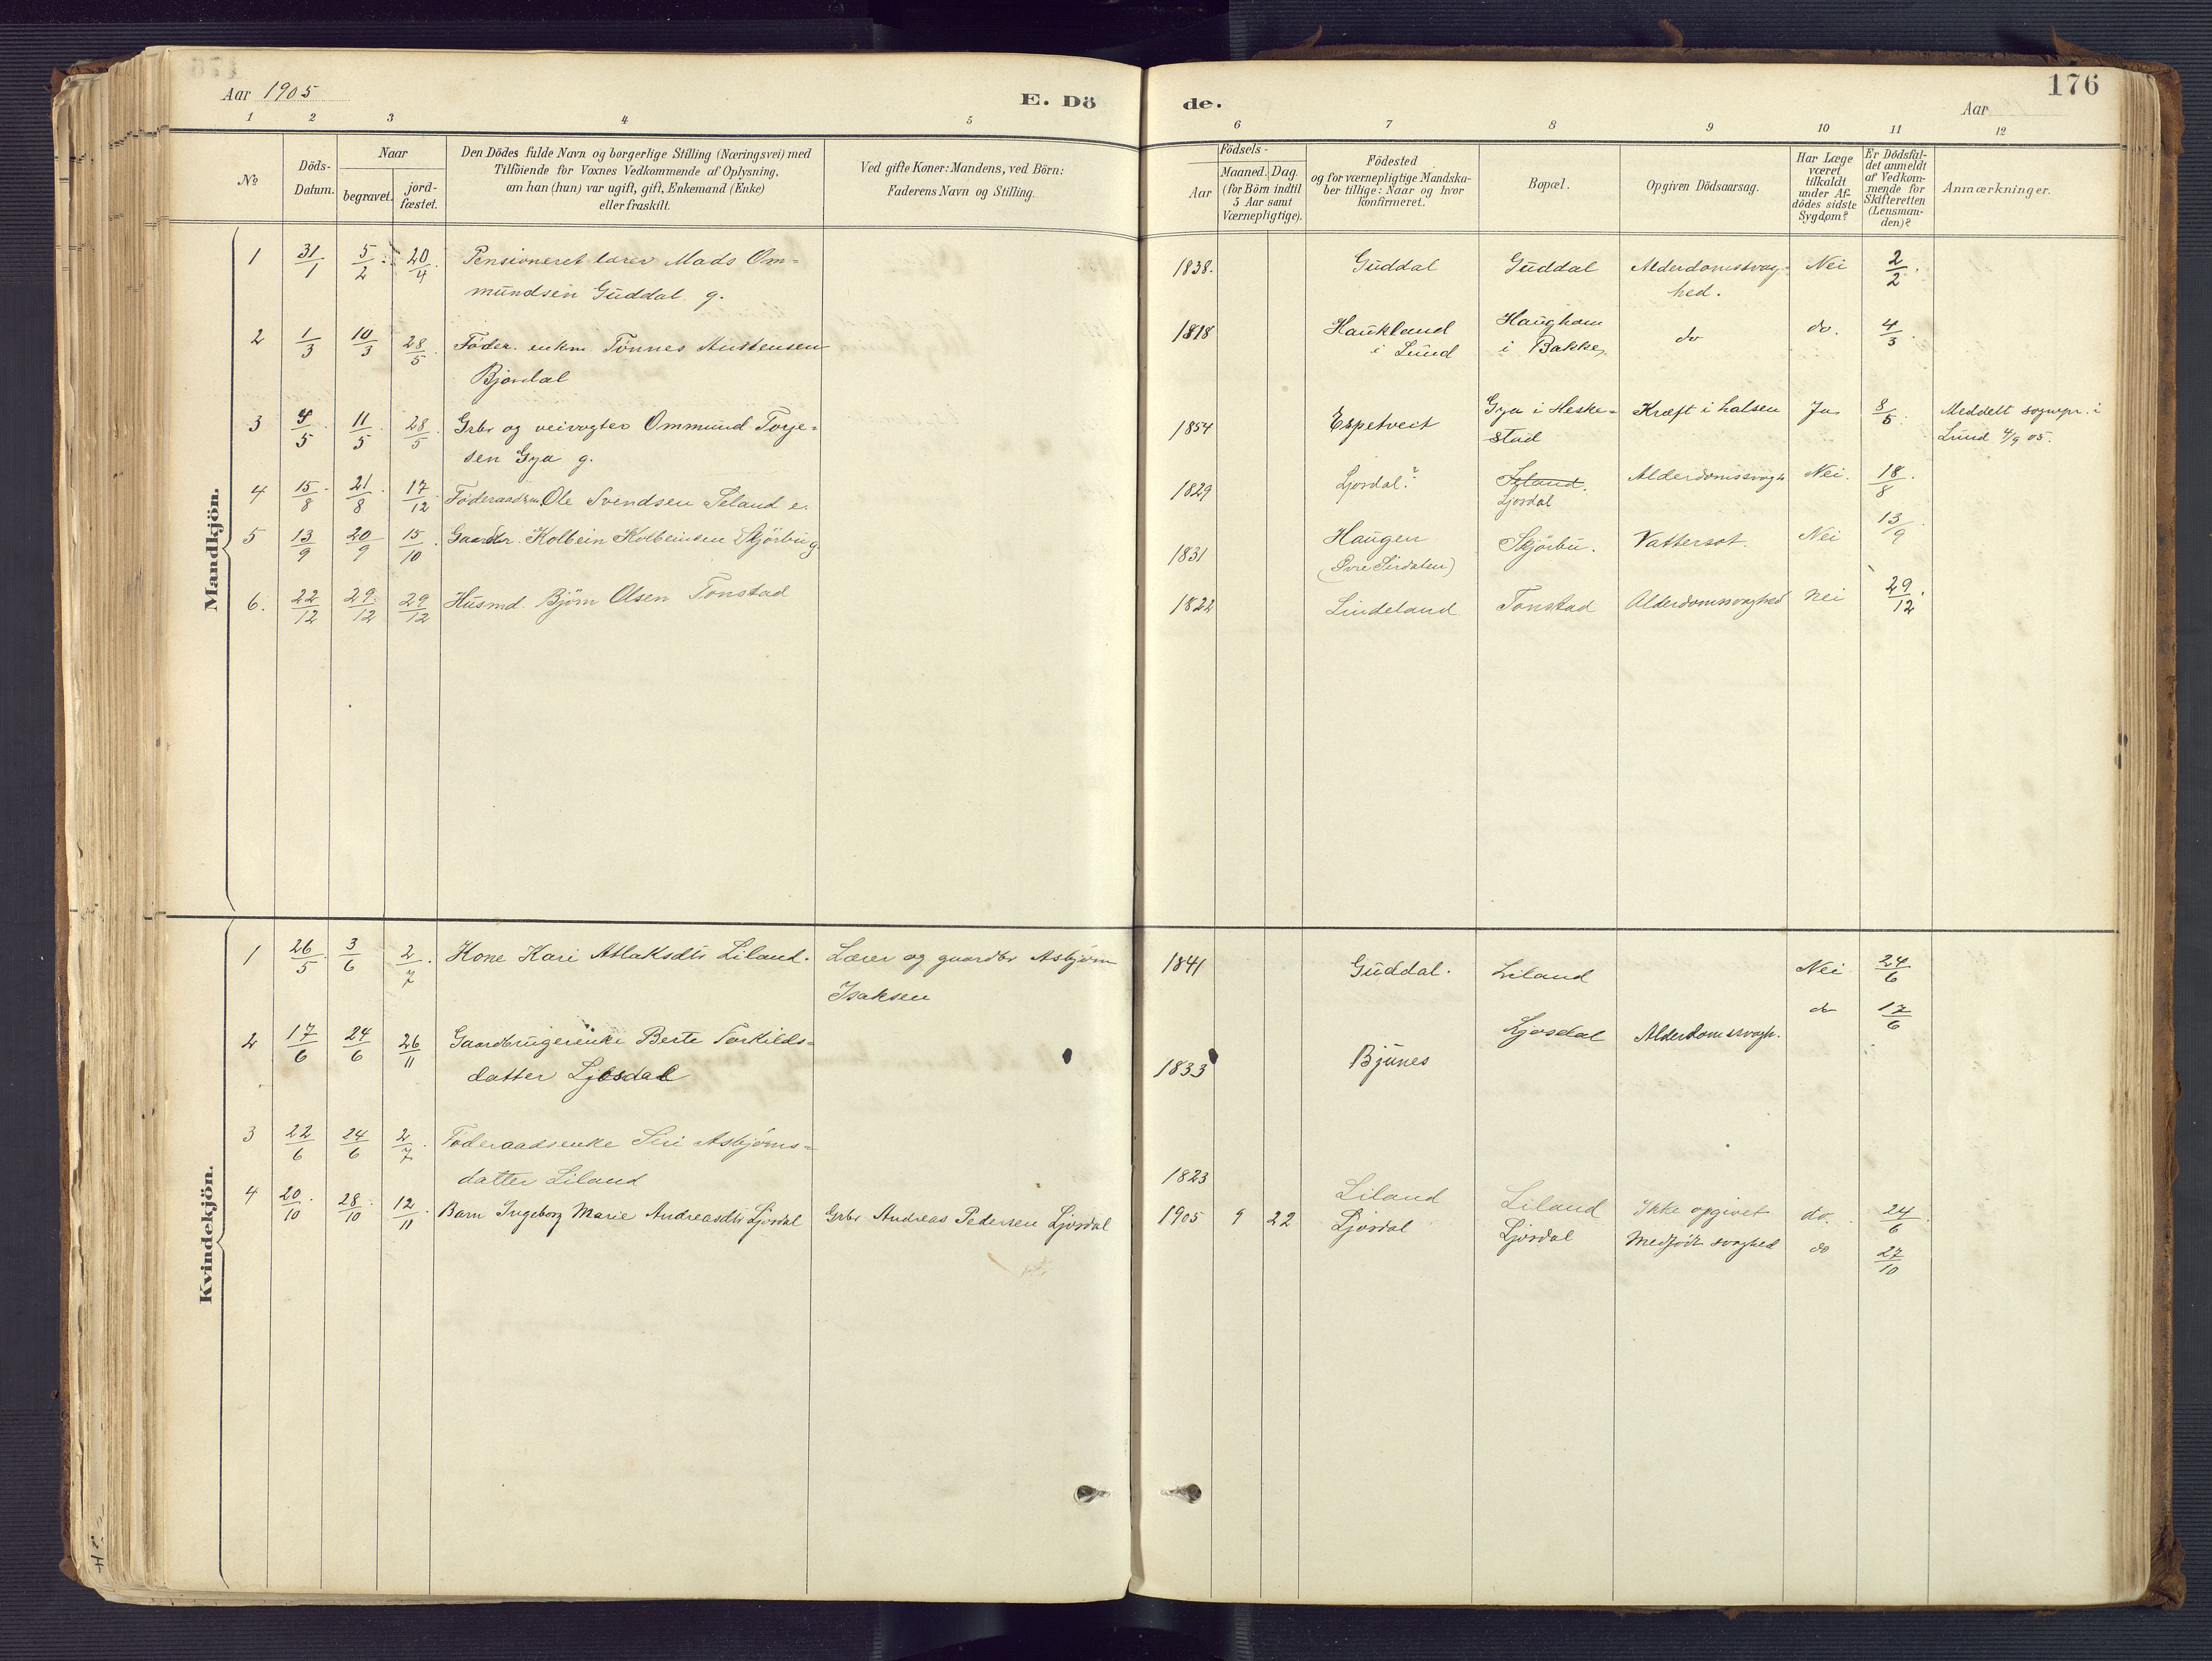 176
Aar 1905
E. Dö
de.
Aar
1 2 3 4 5 6 7 8 9 10 11 12
No
Döds-
Datum.
Naar
begravet.
jord-
fæstet.
Den Dödes fulde Navn og borgerlige Stilling (Næringsvei) med
Tilföiende for Voxnes Vedkommende af Oplysning,
om han (hun) var ugift, gift, Enkemand (Enke)
eller fraskilt.
Ved gifte Koner: Mandens, ved Börn:
Faderens Navn og Stilling.
Födsels-
Aar
Maaned. Dag.
(for Börn indtil
5 Aar samt
Værnepligtige).
Födested
og for værnepligtige Mandska-
ber tillige: Naar og hvor
konfirmeret.
Bopæl.
Opgiven Dödsaarsag.
Har Læge
været
tilkaldt
under Af-
dödes sidste
Sygdom?
Er Dödsfal-
det anmeldt
af Vedkom-
mende for
Skifteretten
(Lensman-
den)?
Anmærkninger.
Mandkjön.
1 31/1 5/2 20/4 Pensioneret lærer Mads Om-
mundsen Guddal g. 1838. Guddal Guddal Alderdomssvag-
hed. Nei 2/2
2 1/3 10/3 28/5 Föder. enkm. Tönnes Austensen
Bjordal 1818 Haukland
i Lund Haughom
i Bakke do do. 4/3
3 4/5 11/5 28/5 Grbr og veivogter Ommund Torje-
sen Gya g. 1854 Espetveit Gya i Heske-
stad Kræft i halsen Ja 8/5 Meddelt sognepr. i
Lund 4/9 05.
4 15/8 21/8 17/12 Föderaadsm. Ole Svendsen Seland e. 1829 Ljosdal? Seland.
Ljosdal Alderdomssvagh Nei. 18/8
5 13/9 20/9 15/10 Gaardbr. Kolbein Kolbeinsen Skjörbu g. 1831 Haugen
(Övre Sirdalen) Skjörbu. Vattersot. Nei 13/9
6. 22/12 29/12 29/12 Husmd. Björn Olsen Tonstad 1822 Lindeland Tonstad Alderdomssvaghed Nei 29/12
Kvindekjön.
1 26/5 3/6 2/7 Kone Kari Atlaksdtr Liland. Lærer og gaardbr Asbjörn
Isaksen 1841 Guddal. Liland Nei 24/6
2 17/6 24/6 26/11 Gaardbrugerenke Berte Torkilds-
datter Ljosdal 1833 Bjunes Ljosdal Alderdomssvagh. do 17/6
3 22/6 24/6 2/7 Föderaadsenke Siri Asbjörns-
datter Liland 1823 Liland Liland Ikke opgivet do. 24/6
4 20/10 28/10 12/11 Barn Ingeborg Marie Andreasdtr Ljosdal Grbr Andreas Pedersen Ljosdal 1905 9 22 Ljosdal Ljosdal Medfödt svaghed do 27/10